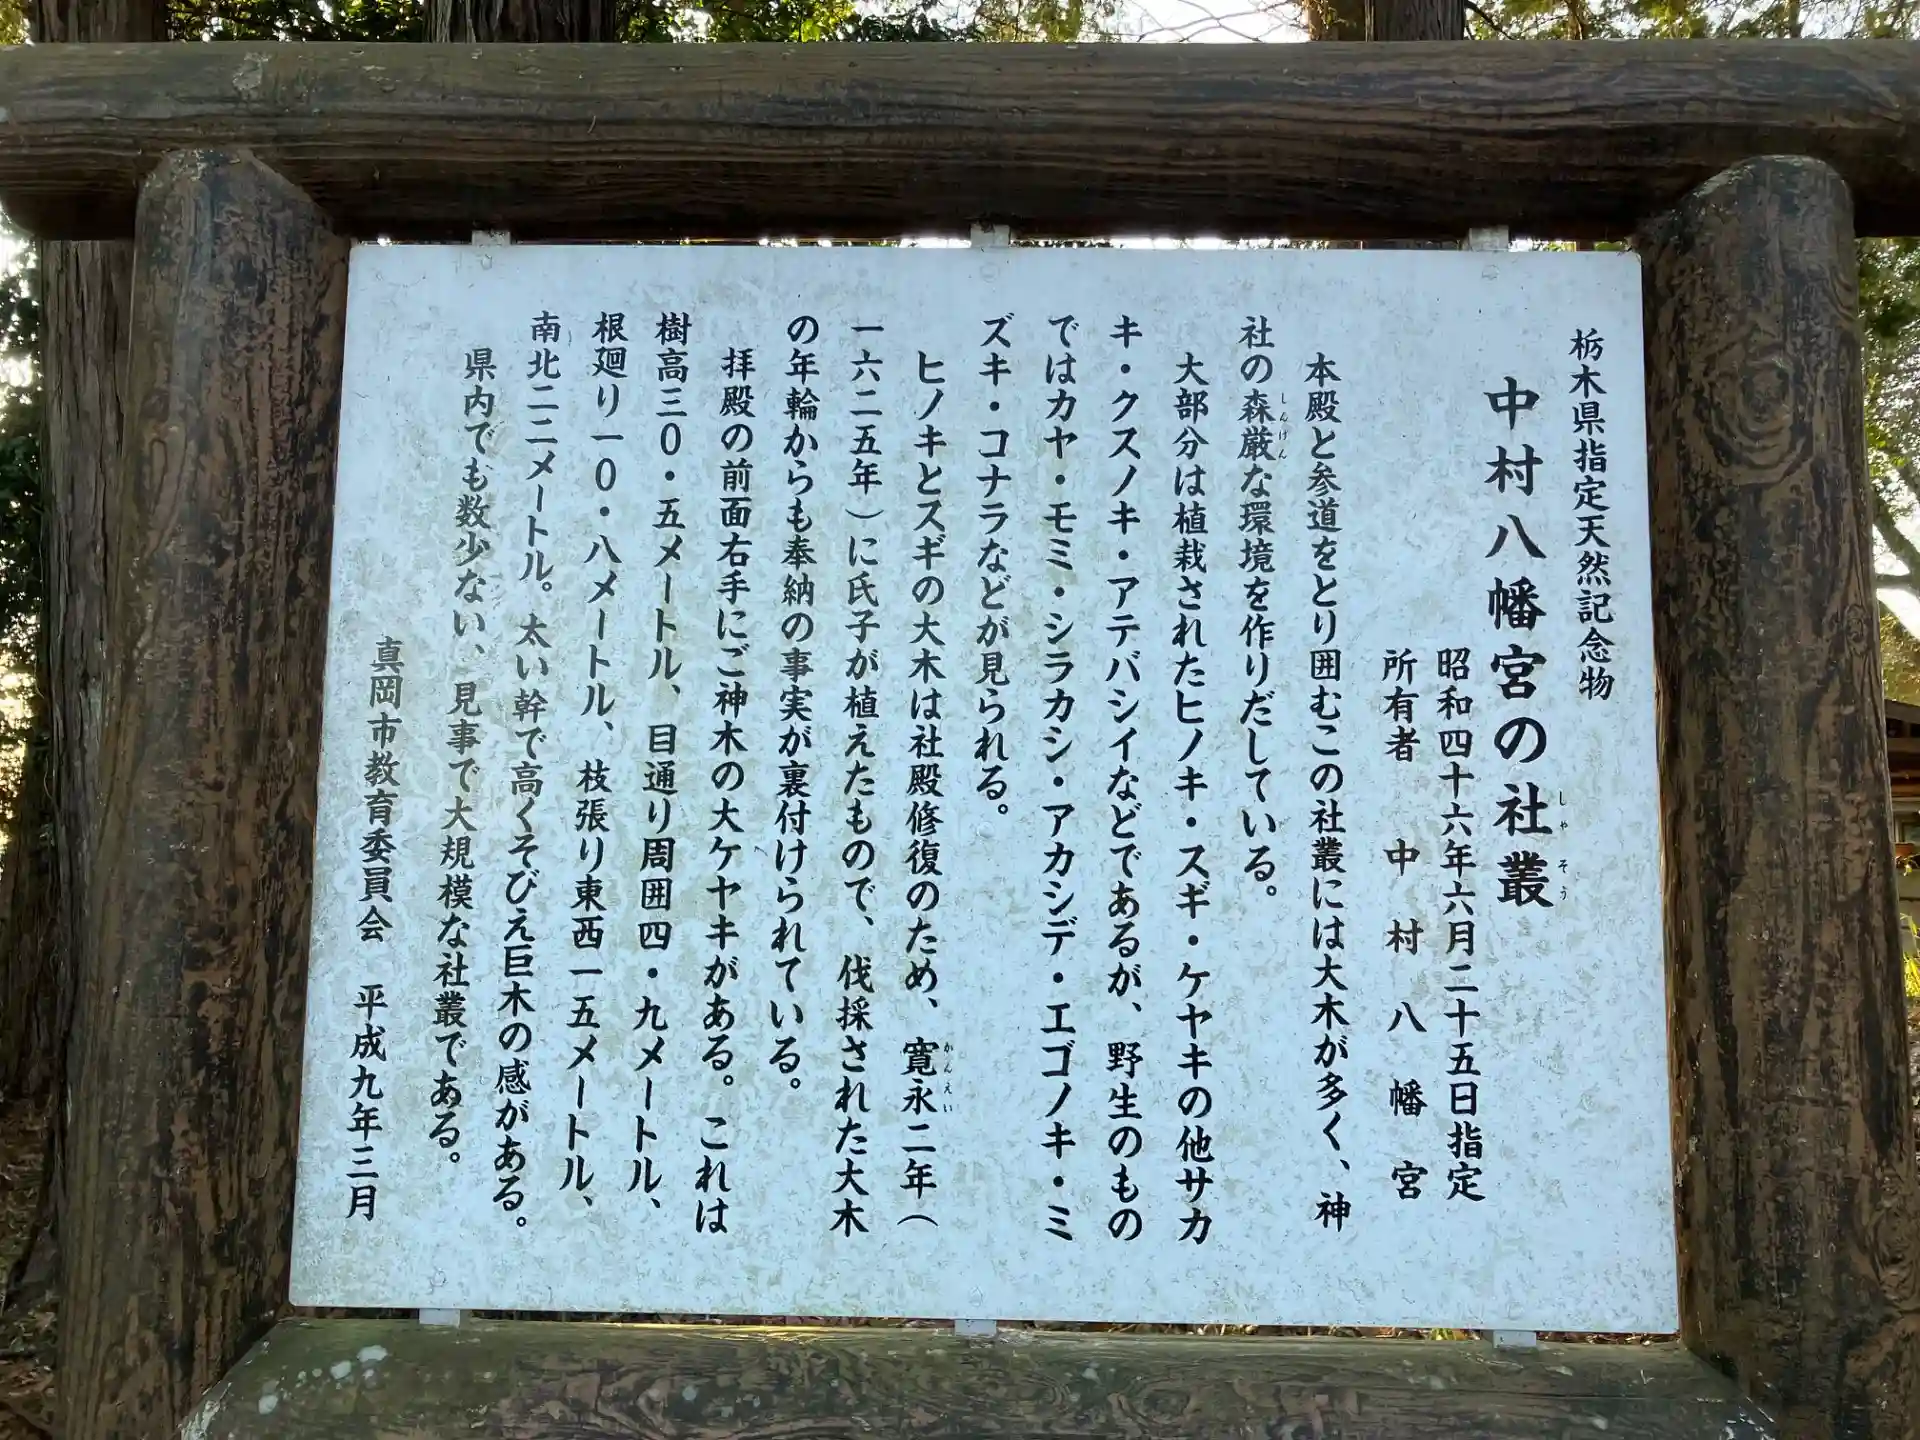 栃木県指定天然記念物
中村八幡宮の社叢
しゃそう
昭和四十六年六月二十五日指定
所有者 中村八幡宮
本殿と参道をとり囲むこの社叢には大木が多く、神
社の森厳な環境を作りだしている。
しんげん
大部分は植栽されたヒノキ・スギ・ケヤキの他サカ
キ・クスノキ・アテバシイなどであるが、野生のもの
ではカヤ・モミ・シラカシ・アカシデ・エゴノキ・ミ
ズキ・コナラなどが見られる。
ヒノキとスギの大木は社殿修復のため、寛永二年(
かんえい
一六二五年)に氏子が植えたもので、伐採された大木
の年輪からも奉納の事実が裏付けられている。
拝殿の前面右手にご神木の大ケヤキがある。これは
樹高三0・五メートル、目通り周囲四・九メートル、
根廻り一0・八メートル、枝張り東西一五メートル、
南北二二メートル。太い幹で高くそびえ巨木の感がある。
県内でも数少ない、見事で大規模な社叢である。
真岡市教育委員会 平成九年三月